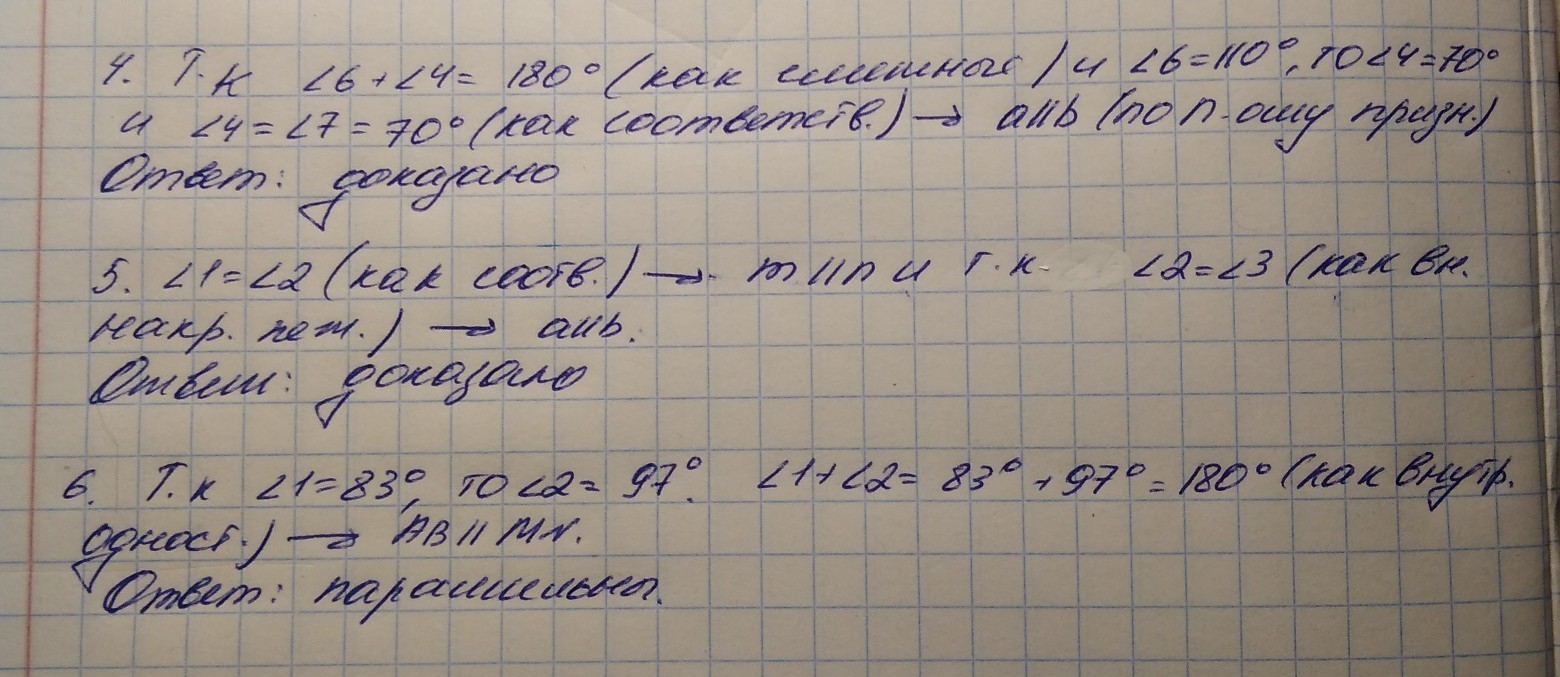 4. Т.к ∠6+∠4= 180° (как смежные) и ∠6=110°, то ∠4=70°
и ∠4=∠7=70° (как соответств.) → a||b (по п-ому призн.)
Ответ: доказано
5. ∠1=∠2 (как соотв.) → m||n и т.к. ∠2=∠3 (как вн.
накр. леж.) → a||b.
Ответ: доказано
6. Т.к ∠1=83°, то ∠2= 97°. ∠1+∠2= 83°+97°=180° (как внутр.
одност.) → AB || MN.
Ответ: параллельны.